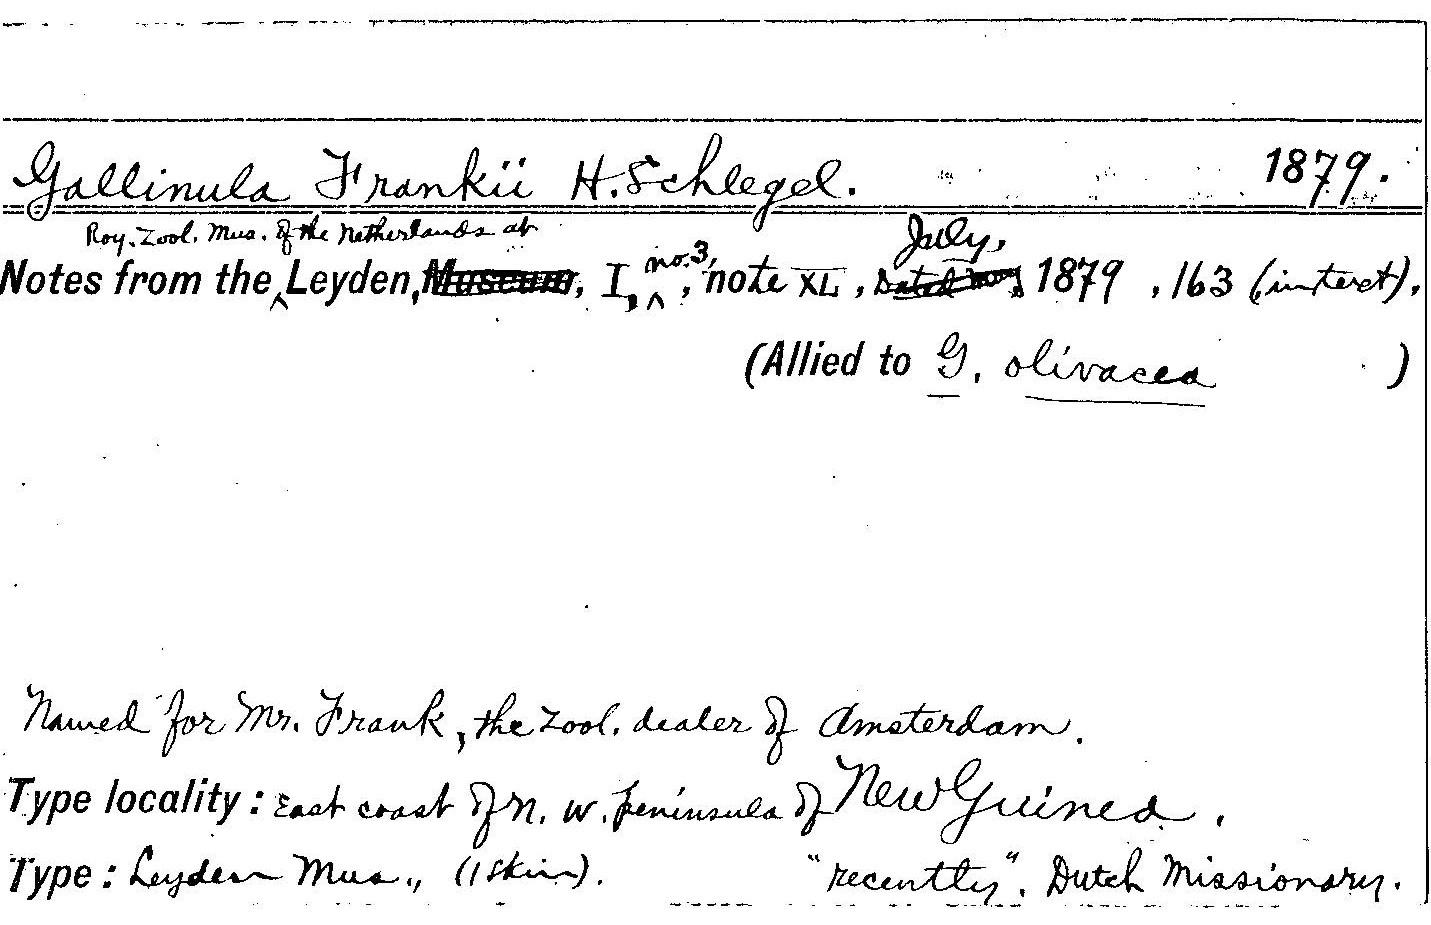 Gallinula Frankii H. Schlegel. 1879.
Roy. Zool. Mus. of the Netherlands at
Notes from the Leyden, Museum, I, no. 3, note XL, July, 1879, 163 (in text).
(Allied to G. olivacea )
Named for Mr. Frank, the Zool. dealer of Amsterdam.
Type locality: East coast of N. W. peninsula of New Guinea.
Type: Leyden Mus., (1 skin). "recently". Dutch Missionary.